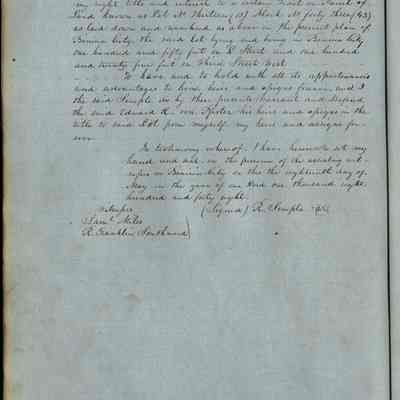 my right title and interest to a certain Tract or Parcel of
Land known as Lot No Thirteen (13) Block No forty three (43)
as laid down and numbered as above on the present plan of
Benicia City, the said Lot lying and being in Benicia City
one hundred and fifty feet on D Street and one hundred
and twenty five feet on Third Street West
To have and to hold with all its appurtenances
and advantages to heirs and assigns forever, and I
the said Semple do by these presents warrant and defend
the said Edward H. von Pfister his heirs and assigns in the
title to said Lot from myself my heirs and assigns for-
ever
In testimony whereof I have hereunto set my
hand and seal in the presence of the subscribing wit-
nesses in Benicia City on this the eighteenth day of
May in the year of our Lord one thousand eight
hundred and forty eight.
Witnesses (Signed) R. Semple
Saml Miles
R. Franklin Southward